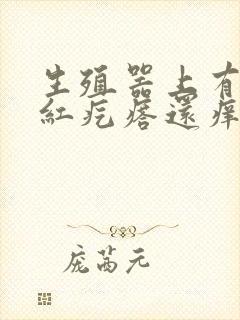 生殖器上有
紅疙瘩還痒
庞茜元